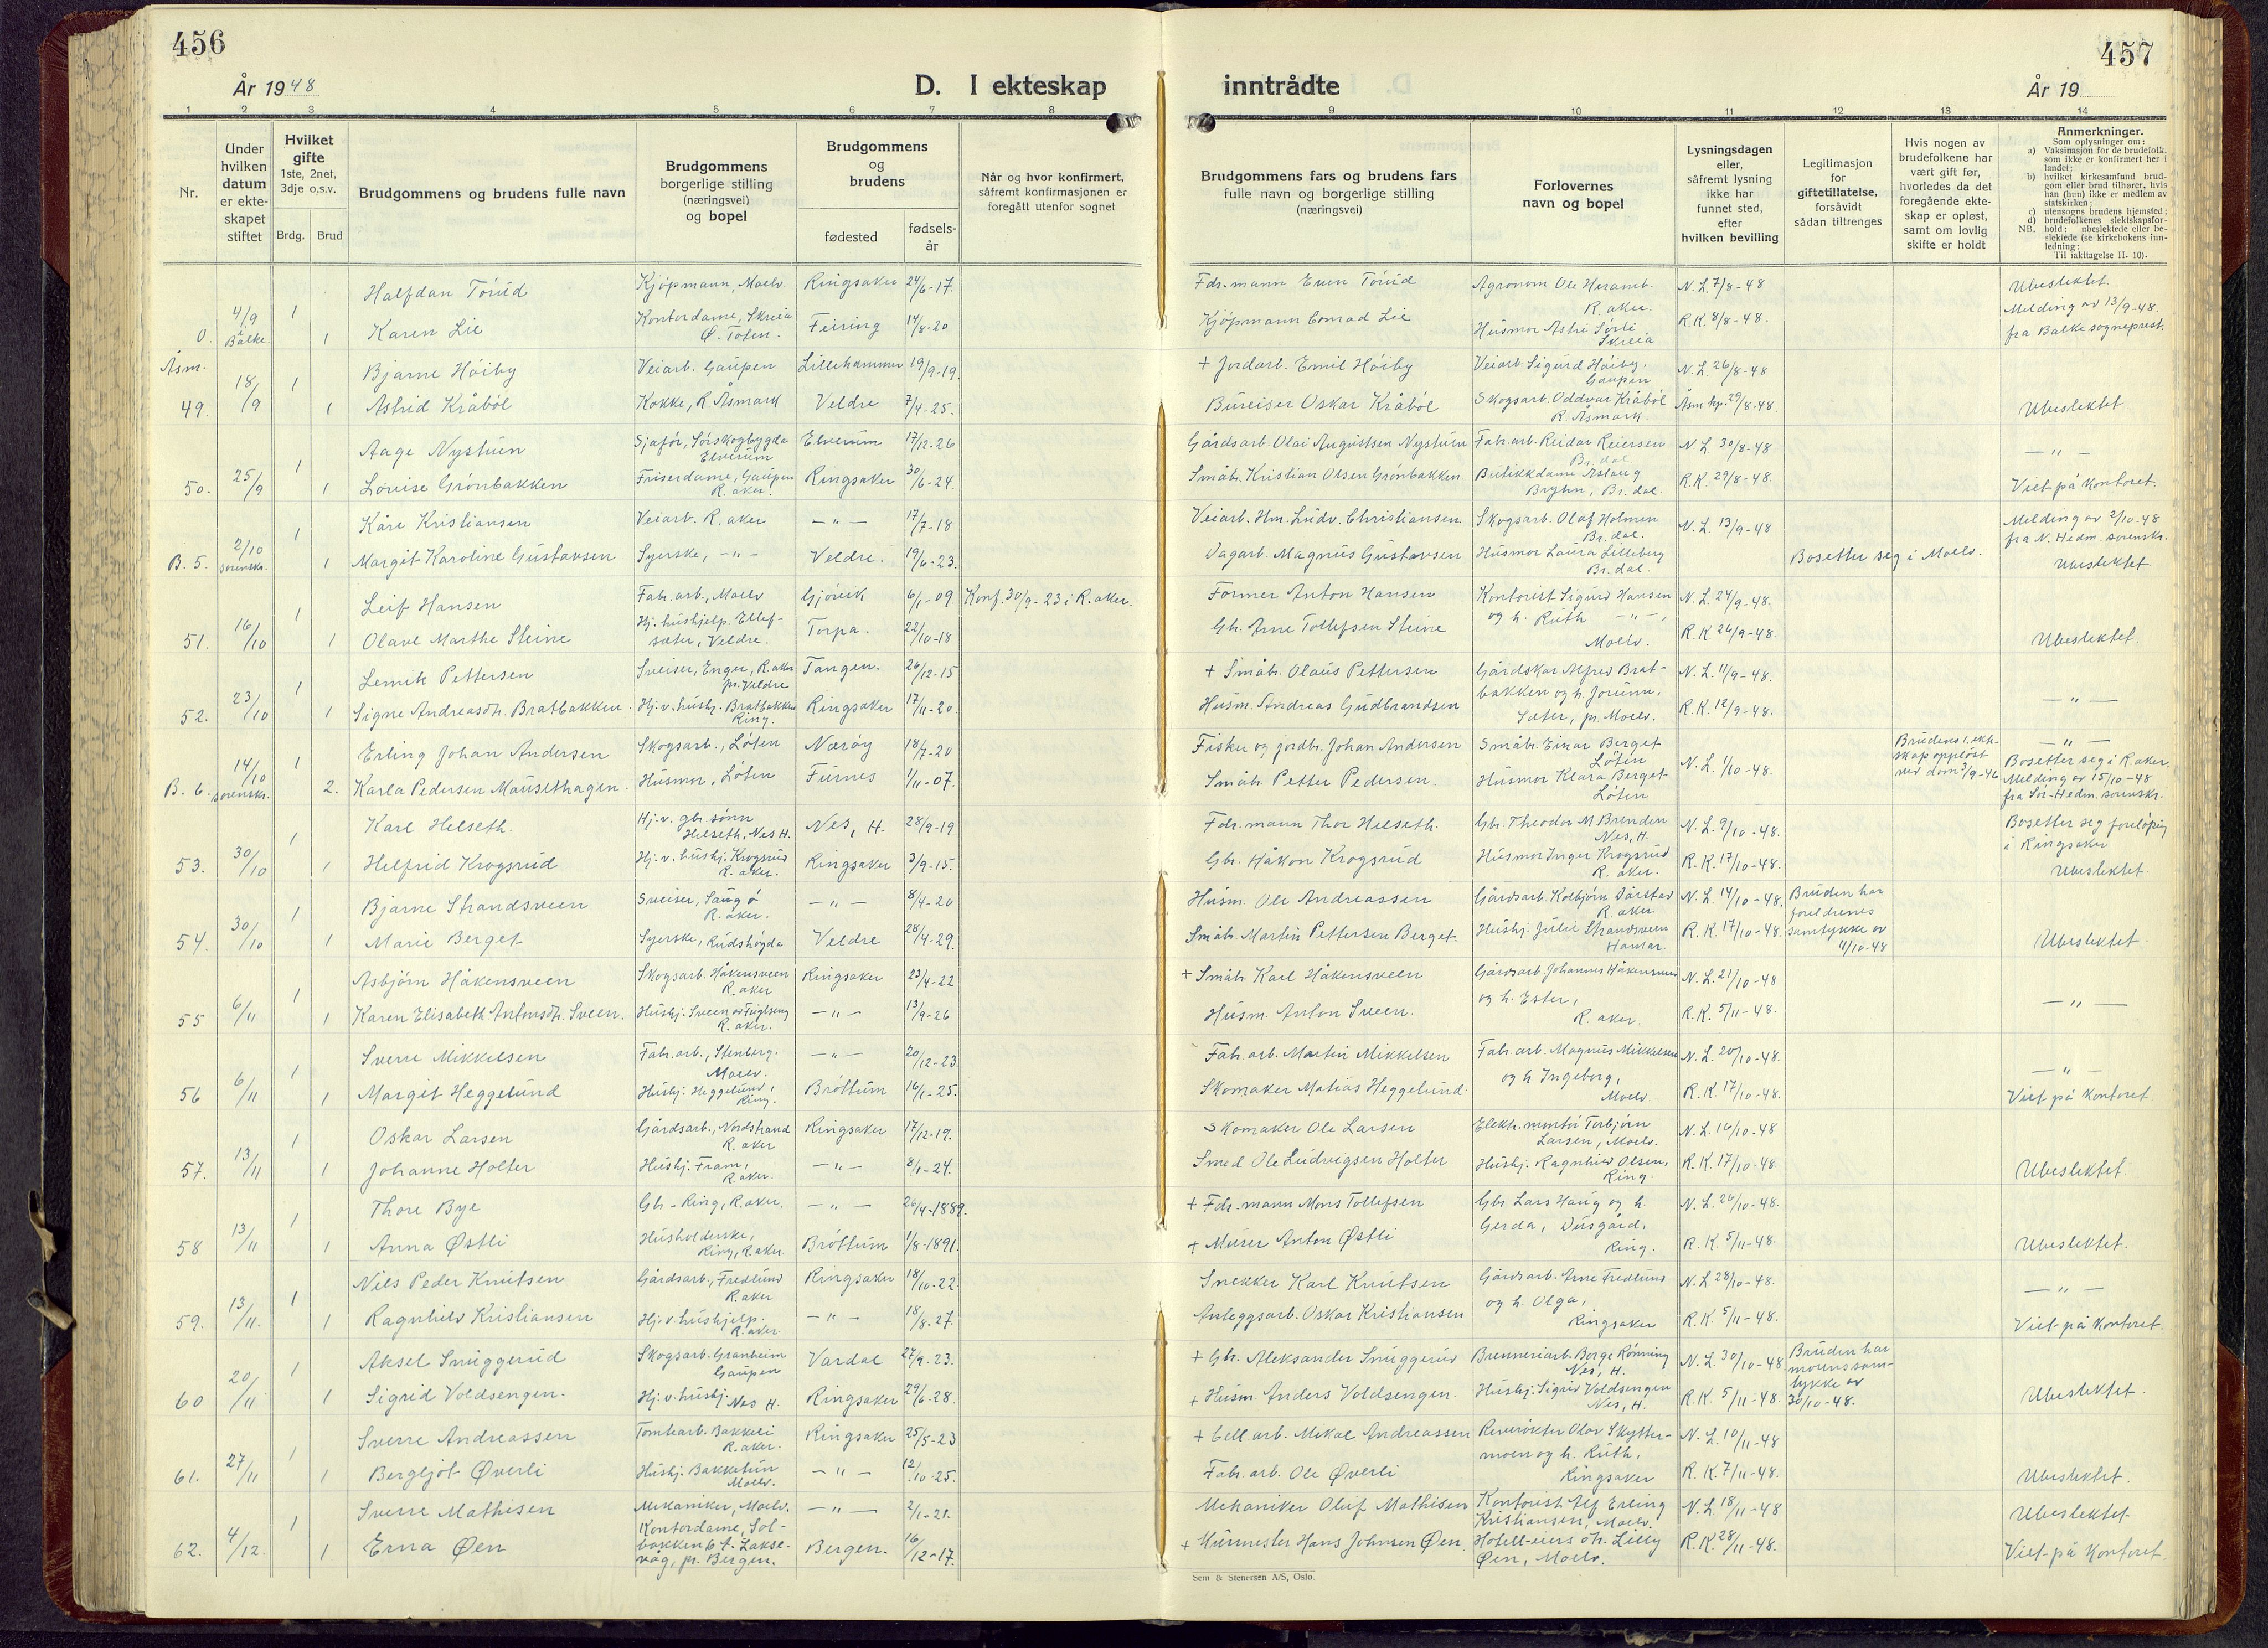 456
År 1948
D. I ekteskap
1 2 3 4 5 6 7 8
Nr.
Under hvilken datum er ekte-skapet stiftet
Hvilket gifte 1ste, 2net, 3dje o.s.v.
Brdg. Brud
Brudgommens og brudens fulle navn
Brudgommens borgerlige stilling (næringsvei) og bopel
Brudgommens og brudens
fødested
fødsels-år
Når og hvor konfirmert, såfremt konfirmasjonen er foregått utenfor sognet
4/9 1 Halfdan Torud Kjøpmann, Moelv. Ringsaker 24/6-17.
0. i Balke. 1 Karen Lie Kontordame, Skreia Ø. Toten. Feiring 14/8-20
Åsm. 18/9 1 Bjarne Høiby Veiarb. Gaupen Lillehammer 19/9-19.
49. 1 Astrid Kråbøl Kokke, R. Åsmark Veldre 7/4-25.
1 Aage Nystuen Sjafør, Sørskogbygda Elverum Elverum 17/12-26
50. 25/9 1 Lovise Grønbakken Friserdame, Gaupen R. aker. Ringsaker 30/6-24.
1 Kåre Kristiansen Veiarb. R. aker — " — 17/7-18
B. 5. 2/10 sorenskr. 1 Margit Karoline Gustavsen Syerske, - " - Veldre. 19/6-23.
1 Leif Hansen Fabr. arb., Moelv Gjøvik 6/1-09. Konf. 30/9-23 i R. aker.
51. 16/10 1 Olave Marthe Steine Hj. hushjelp. Ellef-sæter, Veldre. Torpa. 22/10-18
1 Lemik Pettersen Sveiser, Enger, R. aker pr. Veldre Tangen. 26/12-15
52. 23/10 1 Signe Andreasdtr. Bratbakken. Hj. v. hushj. Bratbakken Ring. Ringsaker 17/11-20.
1 Erling Johan Andersen Skogsarb., Løten Nærøy 18/7-20
B. 6. 14/10 sorenskr. 2. Karla Pedersen Mausethagen. Husmor, Løten Furnes 1/11-07.
1 Karl Helseth. Hj. v. gbr. sønn Helseth, Nes H. Nes, H. 28/9-19
53. 30/10 1 Helfrid Krogsrud Hj. v. hushj. Krogsrud R. aker. Ringsaker 3/9-15.
1 Bjarne Strandsveen Sveiser, R. aker. — " — 8/4-20
54. 30/10 1 Marie Berget Syerske, Rudshøgda Veldre 28/4-29.
1 Asbjørn Håkensveen Skogsarb. Håkensveen R. aker Ringsaker 23/4-22
55 6/11 1 Karen Elisabeth Antonsdtr. Sveen. Hushj. Sveen av Fuglseng R. aker. — " — 13/9-26
1 Sverre Mikkelsen Fabr. arb., Stenberg. Moelv. — " — 20/12-23.
56 6/11 1 Margit Heggelund Hushj. Heggelund, Ring. Brøttum 16/1-25.
1 Oskar Larsen Gårdsarb., Nordstrand R. aker Ringsaker 17/12-19.
57. 13/11 1 Johanne Holter Hushj. Fram, R. aker. — " — 8/1-24.
1 Thore Bye Gbr - Ring, R. aker. — " — 26/4-1889.
58 13/11 1 Anna Østli Husholderske, Ring, R. aker Brøttum 1/8-1891.
1 Nils Peder Knutsen Gårdsarb., Fredlund R. aker Ringsaker 18/10-22.
59. 13/11. 1 Ragnhild Kristiansen Hj. v. hushjelp. R. aker — " — 18/8-27.
1 Aksel Snuggerud Skogsarb. Granheim Gaupen Vardal 27/9-23.
60 20/11 1 Sigrid Voldsengen. Hj. v. hushj. Nes H. Ringsaker 29/6-28.
1 Sverre Andreassen Tomtearb. Bakkeli R. aker. Ringsaker 25/5-23
61. 27/11 1 Bergljot Øverli Hushj. Bakketun Moelv. — " — 12/10-25.
1 Sverre Mathisen Mekaniker, Moelv. — " — 2/1-21.
62. 4/12. 1 Erna Øen Kontordame, Sol-bakken 6 f. Lakse-våg, pr. Bergen. Bergen. 16/12-17.
457
inntrådte
År 19
9 10 11 12 13 14
Brudgommens fars og brudens fars fulle navn og borgerlige stilling (næringsvei)
Forlovernes navn og bopel
Lysningsdagen eller, såfremt lysning ikke har funnet sted, efter hvilken bevilling
Legitimasjon for giftetillatelse, forsåvidt sådan tiltrenges
Hvis nogen av brudefolkene har vært gift før, hvorledes da det foregående ekte-skap er opløst, samt om lovlig skifte er holdt
Anmerkninger.
Som oplysninger om:
a) Vaksinasjon for de brudefolk. som ikke er konfirmert her i landet;
b) hvilket kirkesamfund brud-gom eller brud tilhører, hvis han (hun) ikke er medlem av statskirken;
c) utensogns brudens hjemsted;
d) brudefolkenes slektskapsfor-hold: ubeslektede eller be-slektede (se kirkebokens inn-ledning;
NB.
Til iakttagelse II. 10).
Fdr. mann Even Torud Agronom Ole Heramb. R. aker. N. L. 7/8-48 Ubeslektet.
Kjøpmann Conrad Lie Husmor Astri Sørli Skreia R. K. 8/8-48. Melding av 13/9-48. fra Balke sogneprest.
+ Jordarb. Emil Høiby Veiarb. Sigurd Høiby, Gaupen N. L. 26/8-48
Bureiser Oskar Kråbøl Skogsarb. Oddvar Kråbøl R. Åsmark. Åsm. kp. 29/8-48. Ubeslektet
Gårdsarb. Olai Augustsen Nystuen Fabr. arb. Reidar Reiersen Br. dal N. L. 30/8-48 — " —
Småbr. Kristian Olsen Grønbakken Butikkdame Aslaug Bryhn, Br. dal. R. K. 29/8-48. Viet på kontoret.
Veiarb. Hm. Ludv. Christiansen Skogsarb. Olaf Holmen Br. dal. N. L. 13/9-48 Melding av 2/10-48 fra N. Hedm. sorenskr.
Dagarb. Magnus Gustavsen Husmor Laura Lilleberg Br. dal. Bosetter seg i Moelv. Ubeslektet
Former Anton Hansen Kontorist Sigurd Hansen og h. Ruth - " -, Moelv. N. L. 24/9-48.
Gbr. Arne Tollefsen Steine R. K. 26/9-48. Ubeslektet
+ Småbr. Olaus Pettersen Gårdskar Alfred Brat-bakken og h. Jorunn, Sæter, pr. Moelv. N. L. 11/9-48. — " —
Husm. Andreas Gudbrandsen R. K. 12/9-48.
Fisker og jordbr. Johan Andersen Småbr. Einar Berget Løten N. L. 1/10-48. Brudens 1. ekt-skap oppløst ved dom 3/9-46 — " —
Småbr. Petter Pedersen. Husmor Klara Berget Løten Bosetter seg i R. aker. Melding av 15/10-48 fra Sør-Hedm. sorenskr.
Fdr. mann Thor Helseth. Gbr. Theodor M. Brenden Nes, H. N. L. 9/10-48. Bosetter seg foreløpig i Ringsaker
Gbr. Håkon Krogsrud Husmor Inger Krogsrud R. aker. R. K. 17/10-48. Ubeslektet.
Husm. Ole Andreassen Gårdsarb. Kolbjørn Dårstad R. aker. N. L. 14/10-48. Bruden har foreldrenes samtykke av 11/10-48
Småbr. Martin Pettersen Berget. Hushj. Julie Strandsveen Hamar. R. K. 17/10-48. Ubeslektet.
+ Småbr. Karl Håkensveen Gårdsarb. Johannes Håkensveen og h. Ester, R. aker. N. L. 21/10-48
Husm. Anton Sveen. R. K. 5/11-48. — " —
Fabr. arb. Martin Mikkelsen Fabr. arb. Magnus Mikkelsen og h Ingeborg, Moelv. N. L. 20/10-48. — " —
Skomaker Matias Heggelund. R. K. 17/10-48. Viet på kontoret
Skomaker Ole Larsen Elektr. montør Torbjørn Larsen, Moelv. N. L. 16/10-48
Smed Ole Ludvigsen Holter Hushj. Ragnhild Olsen, Ring. R. K. 17/10-48. Ubeslektet.
+ Fdr. mann Mons Tollefsen Gbr. Lars Haug og h. Gerda, Dusgård, Ring. N. L. 26/10-48.
+ Murer Anton Østli R. K. 5/11-48. Ubeslektet.
Snekker Karl Knutsen Gårdsarb. Arne Fredlund og h. Olga, Ringsaker N. L. 28/10-48. — " —
Anleggsarb. Oskar Kristiansen R. K. 5/11-48. Viet på kontoret.
+ Gbr. Aleksander Snuggerud Brenneriarb. Borge Rønning Nes, H. N. L. 30/10-48 Bruden har morens sam-tykke av 30/10-48.
+ Husm. Anders Voldsengen. Hushj. Sigrid Voldsengen Nes, H. R. K. 5/11-48. Ubeslektet.
+ Cell. arb. Mikal Andreassen Reverøkter Olav Skytter-moen og h. Ruth, Ringsaker N. L. 10/11-48
Fabr. arb. Ole Øverli R. K. 7/11-48. Ubeslektet.
Mekaniker Oluf Mathisen Kontorist Alf Erling Kristiansen, Moelv. N. L. 18/11-48 Ubeslektet
+ Murmester Hans Johnsen Øen. Hotell-eiers dtr. Lilly Øen, Moelv. R. K. 28/11-48. Viet på kontoret.
Sem & Stenersen A/S, Oslo.